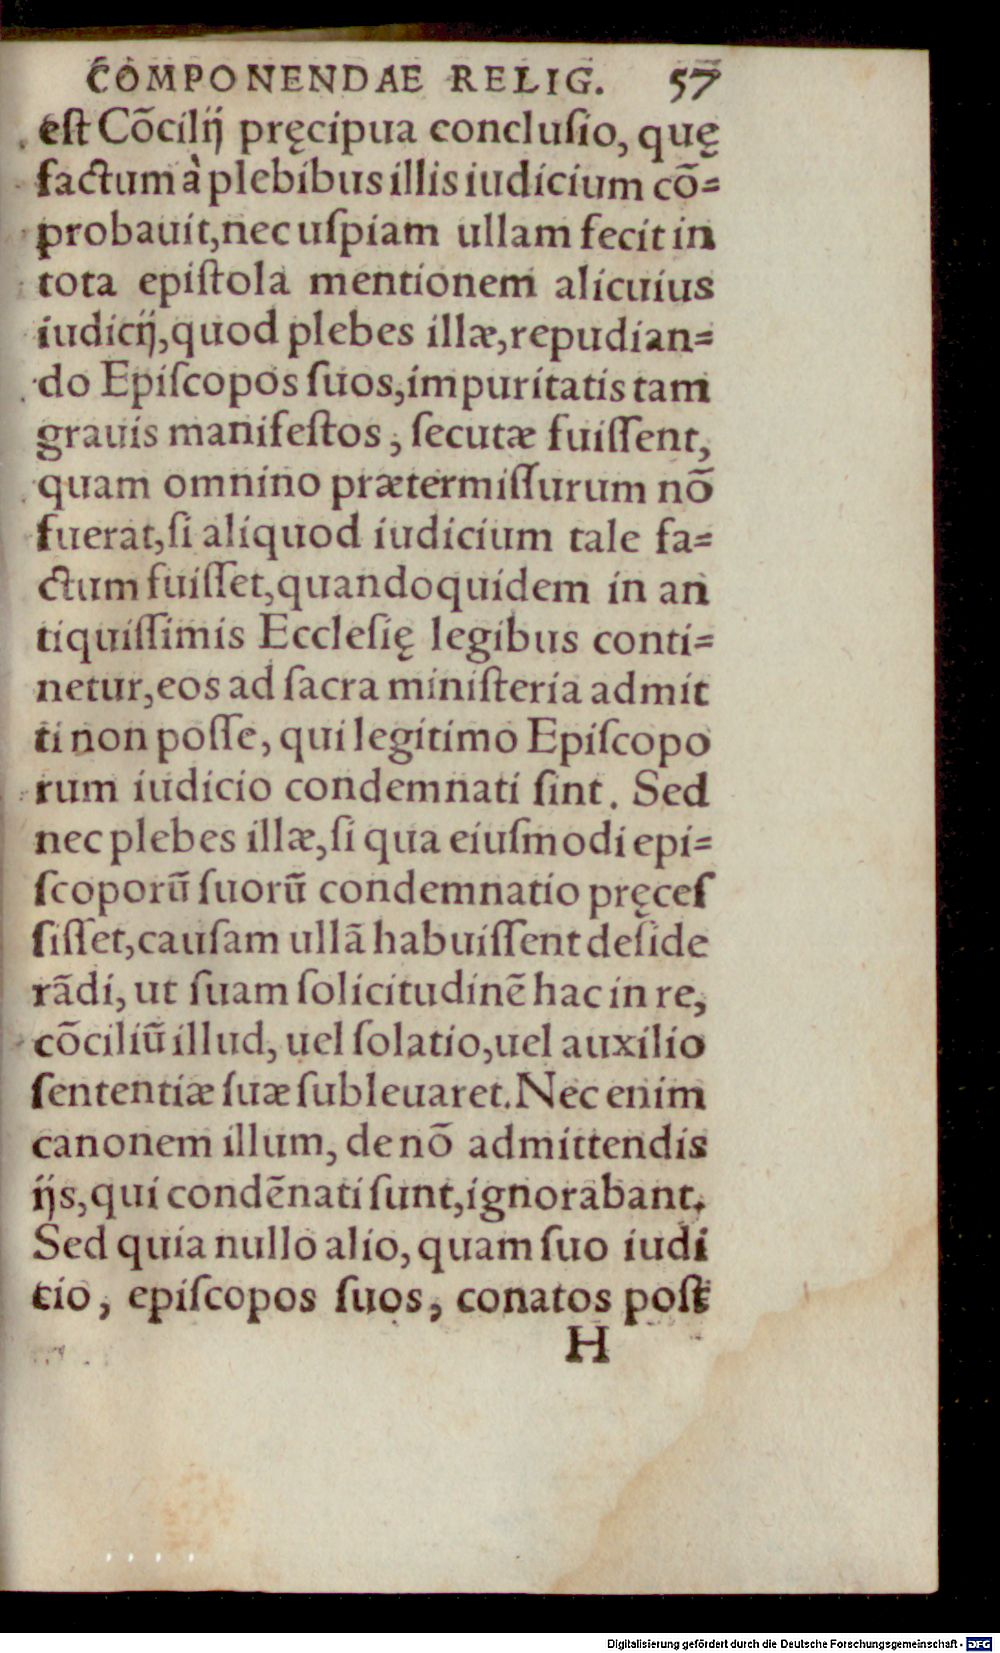 COMPONENDAE RELIG. 57
est Cōcilij pręcipua conclusio, quę
factum à plebibus illis iudicium cō=
probauit, nec uspiam ullam fecit in
tota epistola mentionem alicuius
iudicij, quod plebes illæ, repudian=
do Episcopos suos, impuritatis tam
grauis manifestos, secutæ fuissent,
quam omnino prætermissurum nō
fuerat, si aliquod iudicium tale fa=
ctum fuisset, quandoquidem in an
tiquissimis Ecclesię legibus conti=
netur, eos ad sacra ministeria admit
ti non posse, qui legitimo Episcopo
rum iudicio condemnati sint. Sed
nec plebes illæ, si qua eiusmodi epi=
scoporū suorū condemnatio pręces
sisset, causam ullā habuissent deside
rādi, ut suam solicitudinē hac in re,
cōciliū illud, uel solatio, uel auxilio
sententiæ suæ subleuaret. Nec enim
canonem illum, de nō admittendis
ijs, qui condēnati sunt, ignorabant.
Sed quia nullo alio, quam suo iudi
tio, episcopos suos, conatos post
H
Digitalisierung gefördert durch die Deutsche Forschungsgemeinschaft - DFG